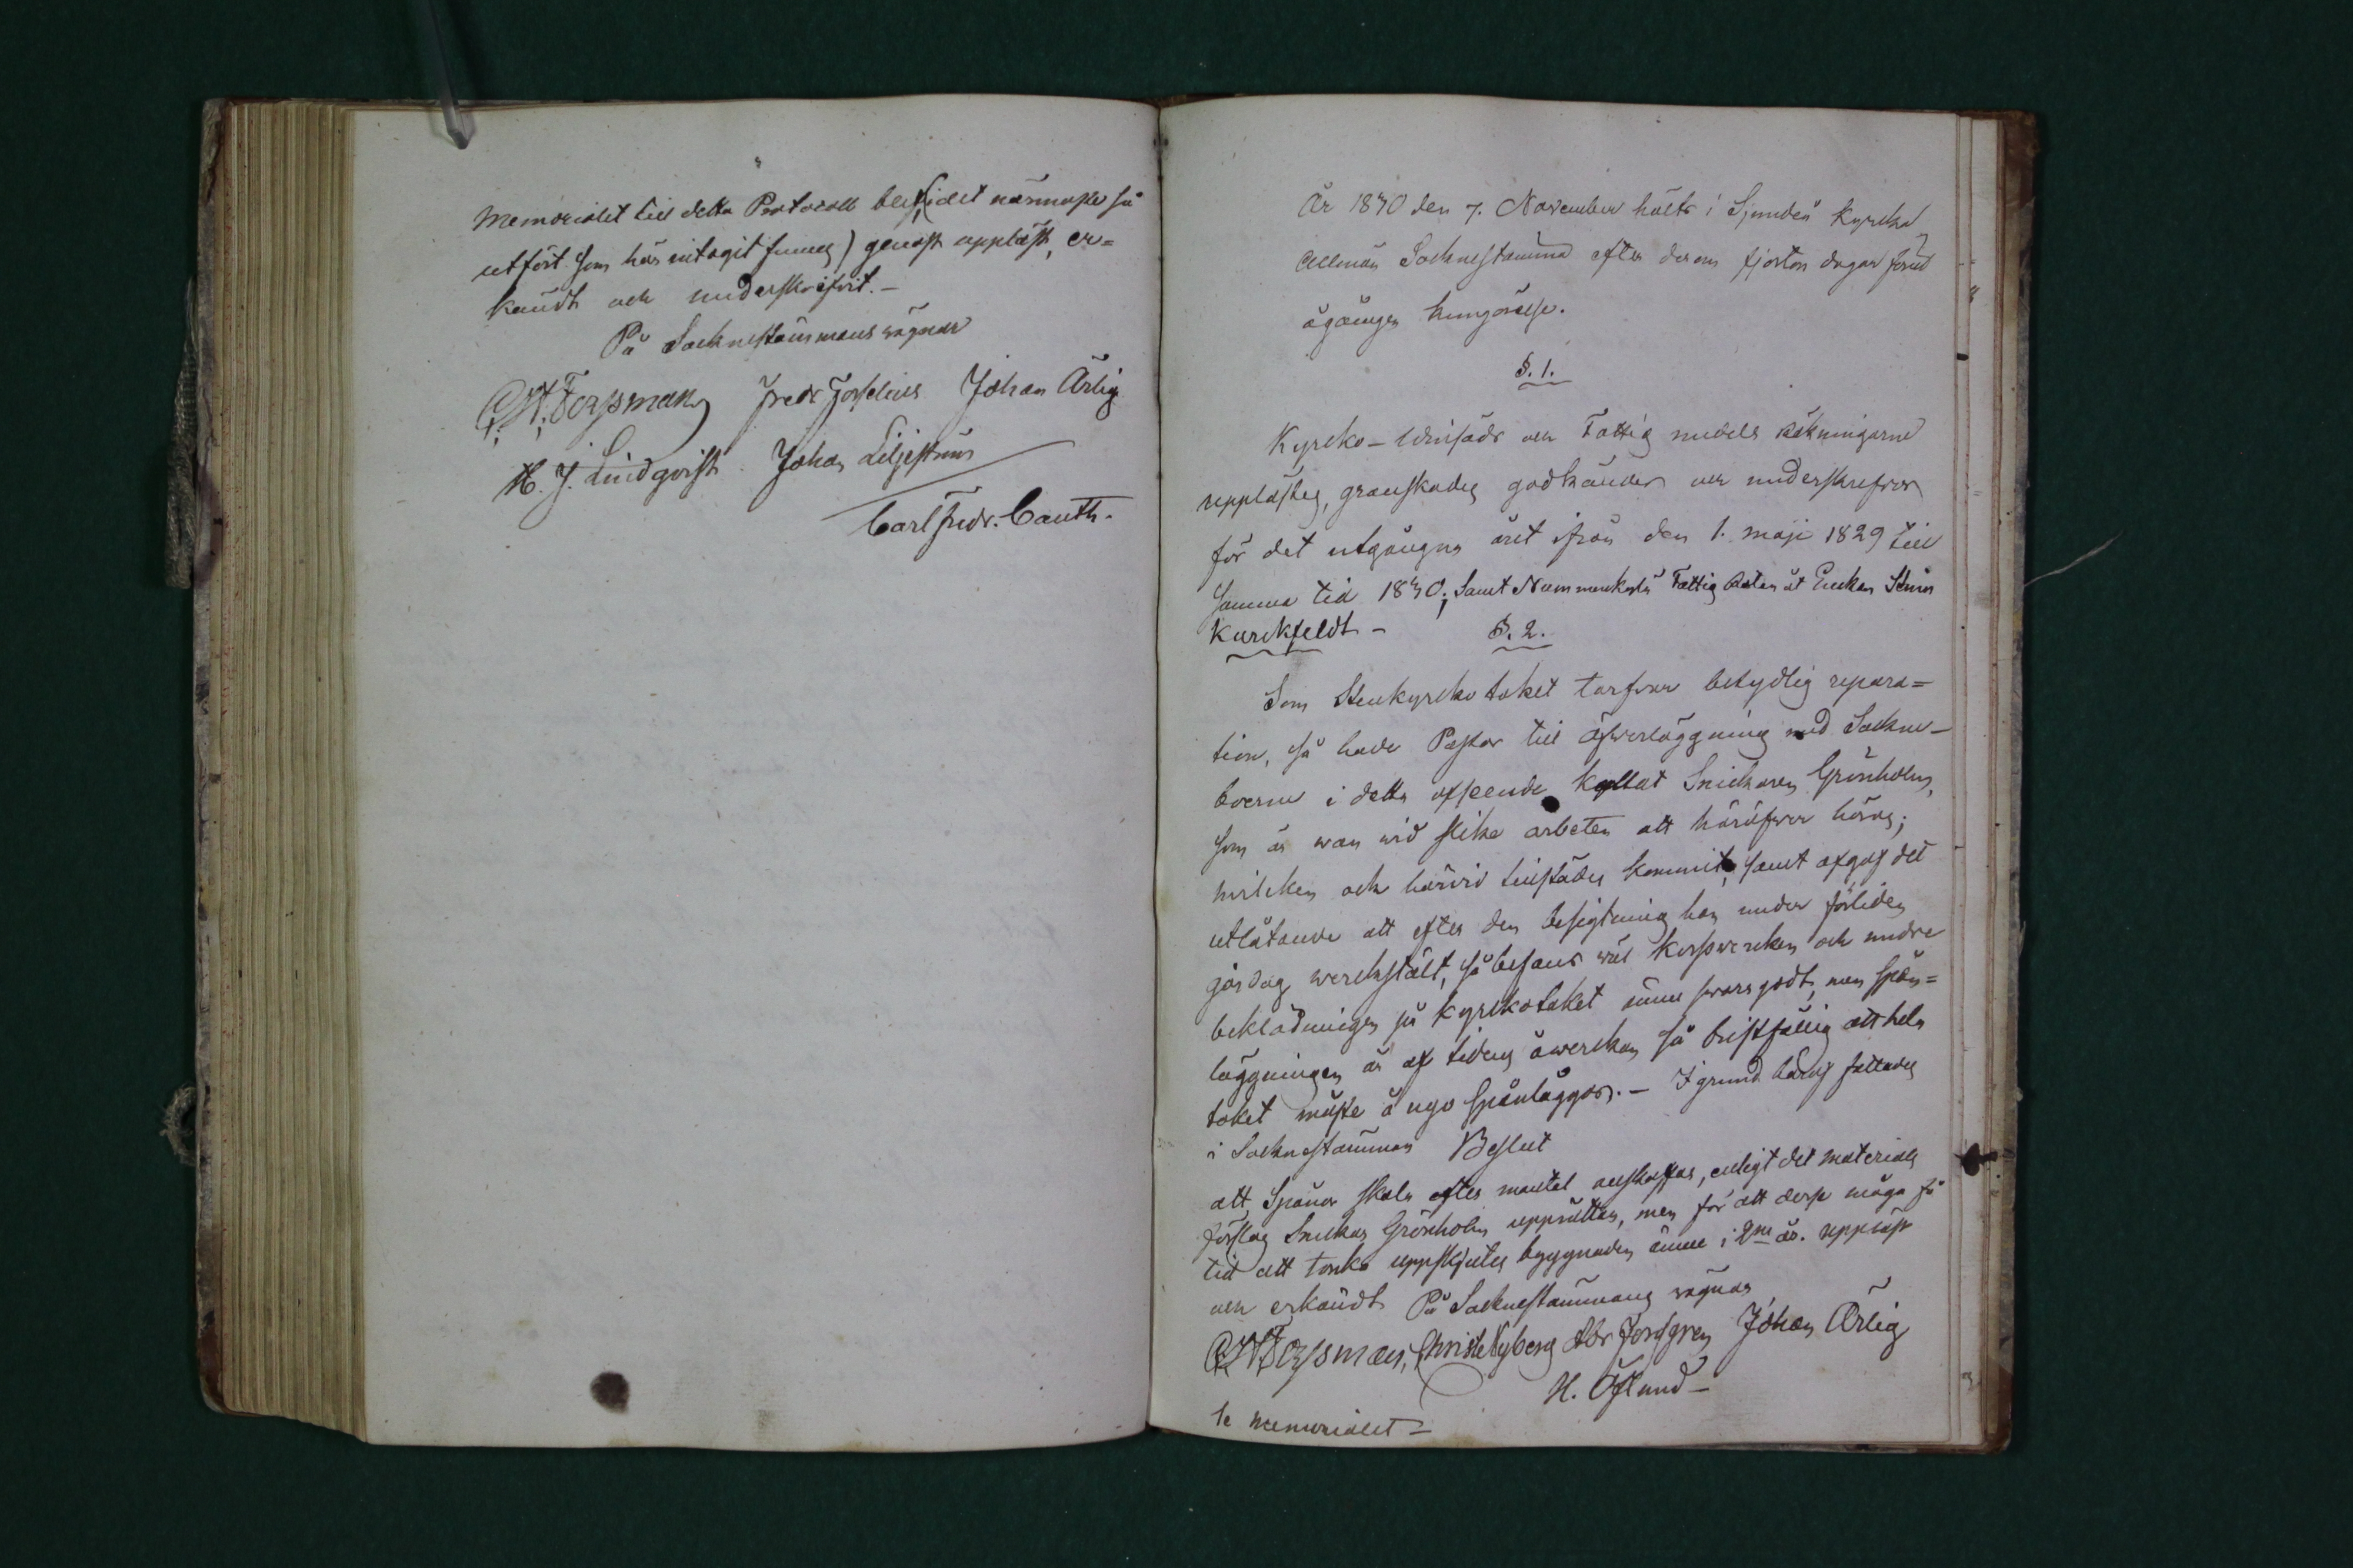 Memorialet till detta Protocoll blef, (det närmaste så
utfört som här intagit finnes) genast uppläst, er=
kändt och underskrifvit. –
På Socknestämmans wägnar
C. H. Forssman Fredr Forselius Johan Ärlig
H. J. Lindqvist Johan Liljestrun
Carl Fredr. Cauth.
År 1830 den 7. November hölts i Sjundeå Kyrcka
allmän Socknestämma efter derom fjorton dagar förut
ågången kungörelse.
§. 1.
Kyrcko- och Fattig medels räkningarne
upplästes, granskades godkändes och underskrefvos
för det utgångna året ifrån den 1. maji 1829 till
samma tid 1830; samt Fattig åt Enkan
Kurckfeldt – §. 2.
Som Stenkyrcko taket tarfvar betydlig repara=
tion, så hade Pastor till öfwerläggning med Sockne-
boerne i detta afseende kallat Snickaren Grönholm,
som är wan wid slika arbeten att häröfwer höras;
hvilcken och härwid tillstädes kommit, samt afgaf det
utlåtande att efter den besigtning han under förliden
gårdag werckstält, så befans wäl korsswercken och undre
beklädningen på kyrckotaket ännu swara godt, men spån=
läggningen är af tidens åwerckan så bristfällig att hela
taket måste å nyo spånläggas. – I grund häraf fattades
i Socknestämman Beslut
att Spånor skola efter mantal anskaffas, enligt det materials
förslag Snickar Grönholm upprättar, men för att desse måga få
tid att torka uppskjutes byggnaden ännu i 2ne år. Uppläst
och erkändt På Socknestämmans wägnar
C. H. Forssman, Christ Nyberg Abr Forsgren Johan Ärlig
H. Öslund –
se memorialet –